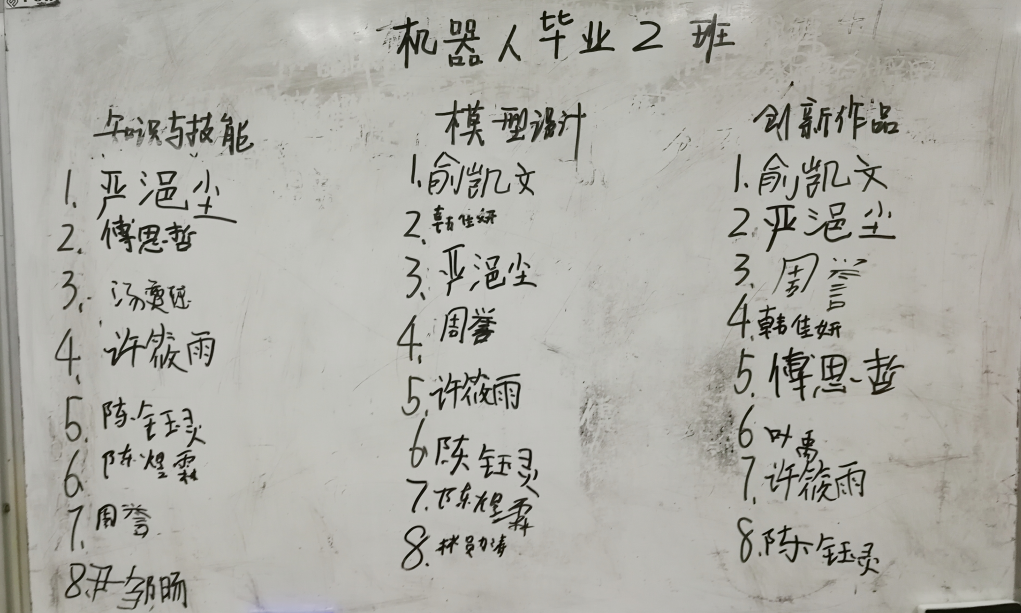 机器人毕业2班
知识与技能
1. 严浥尘
2. 傅思哲
3. 汤
4. 许筱雨
5. 陈钰灵
6. 陈煜霖
7. 周誉
8. 尹邹旸
模型设计
1. 俞凯文
2. 韩佳妍
3. 严浥尘
4. 周誉
5. 许筱雨
6 陈钰灵
7. 陈煜霖
8. 林
创新作品
1. 俞凯文
2. 严浥尘
3. 周誉
4. 韩佳妍
5. 傅思哲
6 叶禹
7. 许筱雨
8. 陈钰灵